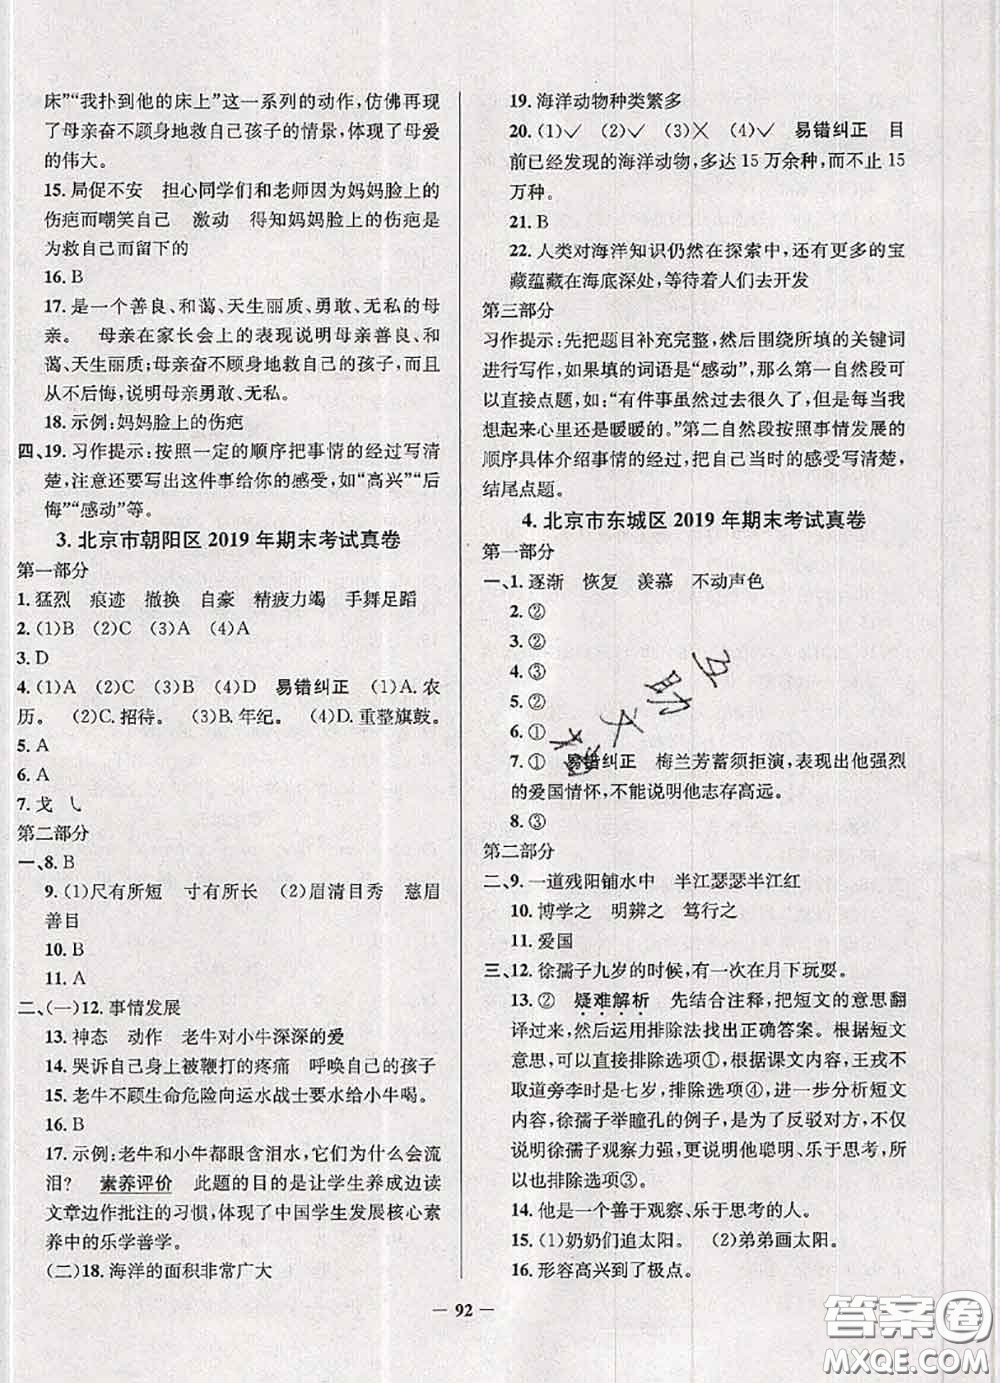 床”“我扑到他的床上”这一系列的动作,仿佛再现
了母亲奋不顾身地救自己孩子的情景,体现了母爱
的伟大。
15. 局促不安　担心同学们和老师因为妈妈脸上的
伤疤而嘲笑自己　激动　得知妈妈脸上的伤疤是
为救自己而留下的
16. B
17. 是一个善良、和蔼、天生丽质、勇敢、无私的母
亲。　母亲在家长会上的表现说明母亲善良、和
蔼、天生丽质;母亲奋不顾身地救自己的孩子,而且
从不后悔,说明母亲勇敢、无私。
18. 示例:妈妈脸上的伤疤
四、19. 习作提示:按照一定的顺序把事情的经过写清
楚,注意还要写出这件事给你的感受,如“高兴”“后
悔”“感动”等。
3. 北京市朝阳区 2019 年期末考试真卷
第一部分
1. 猛烈　痕迹　撤换　自豪　精疲力竭　手舞足蹈
2. (1)B　(2)C　(3)A　(4)A
3. D
4. (1)A　(2)C　(3)B　(4)D　易错纠正　(1)A. 农
历。　(2)C. 招待。　(3)B. 年纪。　(4)D. 重整旗鼓。
5. A
6. A
7. 戈　乀
第二部分
一、8. B
9. (1)尺有所短　寸有所长　(2)眉清目秀　慈眉
善目
10. B
11. A
二、(一)12. 事情发展
13. 神态　动作　老牛对小牛深深的爱
14. 哭诉自己身上被鞭打的疼痛　呼唤自己的孩子
15. 老牛不顾生命危险向运水战士要水给小牛喝。
16. B
17. 示例:老牛和小牛都眼含泪水,它们为什么会流
泪?　素养评价　此题的目的是让学生养成边读
文章边作批注的习惯,体现了中国学生发展核心素
养中的乐学善学。
(二)18. 海洋的面积非常广大
19. 海洋动物种类繁多
20. (1)✓　(2)✓　(3)✗　(4)✓　易错纠正　目
前已经发现的海洋动物,多达 15 万余种,而不止 15
万种。
21. B
22. 人类对海洋知识仍然在探索中,还有更多的宝
藏蕴藏在海底深处,等待着人们去开发
第三部分
习作提示:先把题目补充完整,然后围绕所填的关键词
进行写作,如果填的词语是“感动”,那么第一自然段可
以直接点题,如:“有件事虽然过去很久了,但是每当我
想起来心里还是暖暖的。”第二自然段按照事情发展的
顺序具体介绍事情的经过,把自己当时的感受写清楚,
结尾点题。
4. 北京市东城区 2019 年期末考试真卷
第一部分
一、1. 逐渐　恢复　羡慕　不动声色
2. ②
3. ②
4. ③
5. ②
6. ①
7. ①　易错纠正　梅兰芳蓄须拒演,表现出他强烈
的爱国情怀,不能说明他志存高远。
8. ③
第二部分
二、9. 一道残阳铺水中　半江瑟瑟半江红
10. 博学之　明辨之　笃行之
11. 爱国
三、12. 徐孺子九岁的时候,有一次在月下玩耍。
13. ②　疑难解析　先结合注释,把短文的意思翻
译过来,然后运用排除法找出正确答案。根据短文
意思,可以直接排除选项①,根据课文内容,王戎不
取道旁李时是七岁,排除选项④,进一步分析短文
内容,徐孺子举瞳孔的例子,是为了反驳对方,不仅
说明徐孺子观察力强,更说明他聪明、乐于思考,所
以也排除选项③。
14. 他是一个善于观察、乐于思考的人。
15. (1)奶奶们追太阳。　(2)弟弟画太阳。
16. 形容高兴到了极点。
— 92 —
互助文
答案圈
MXQE.COM